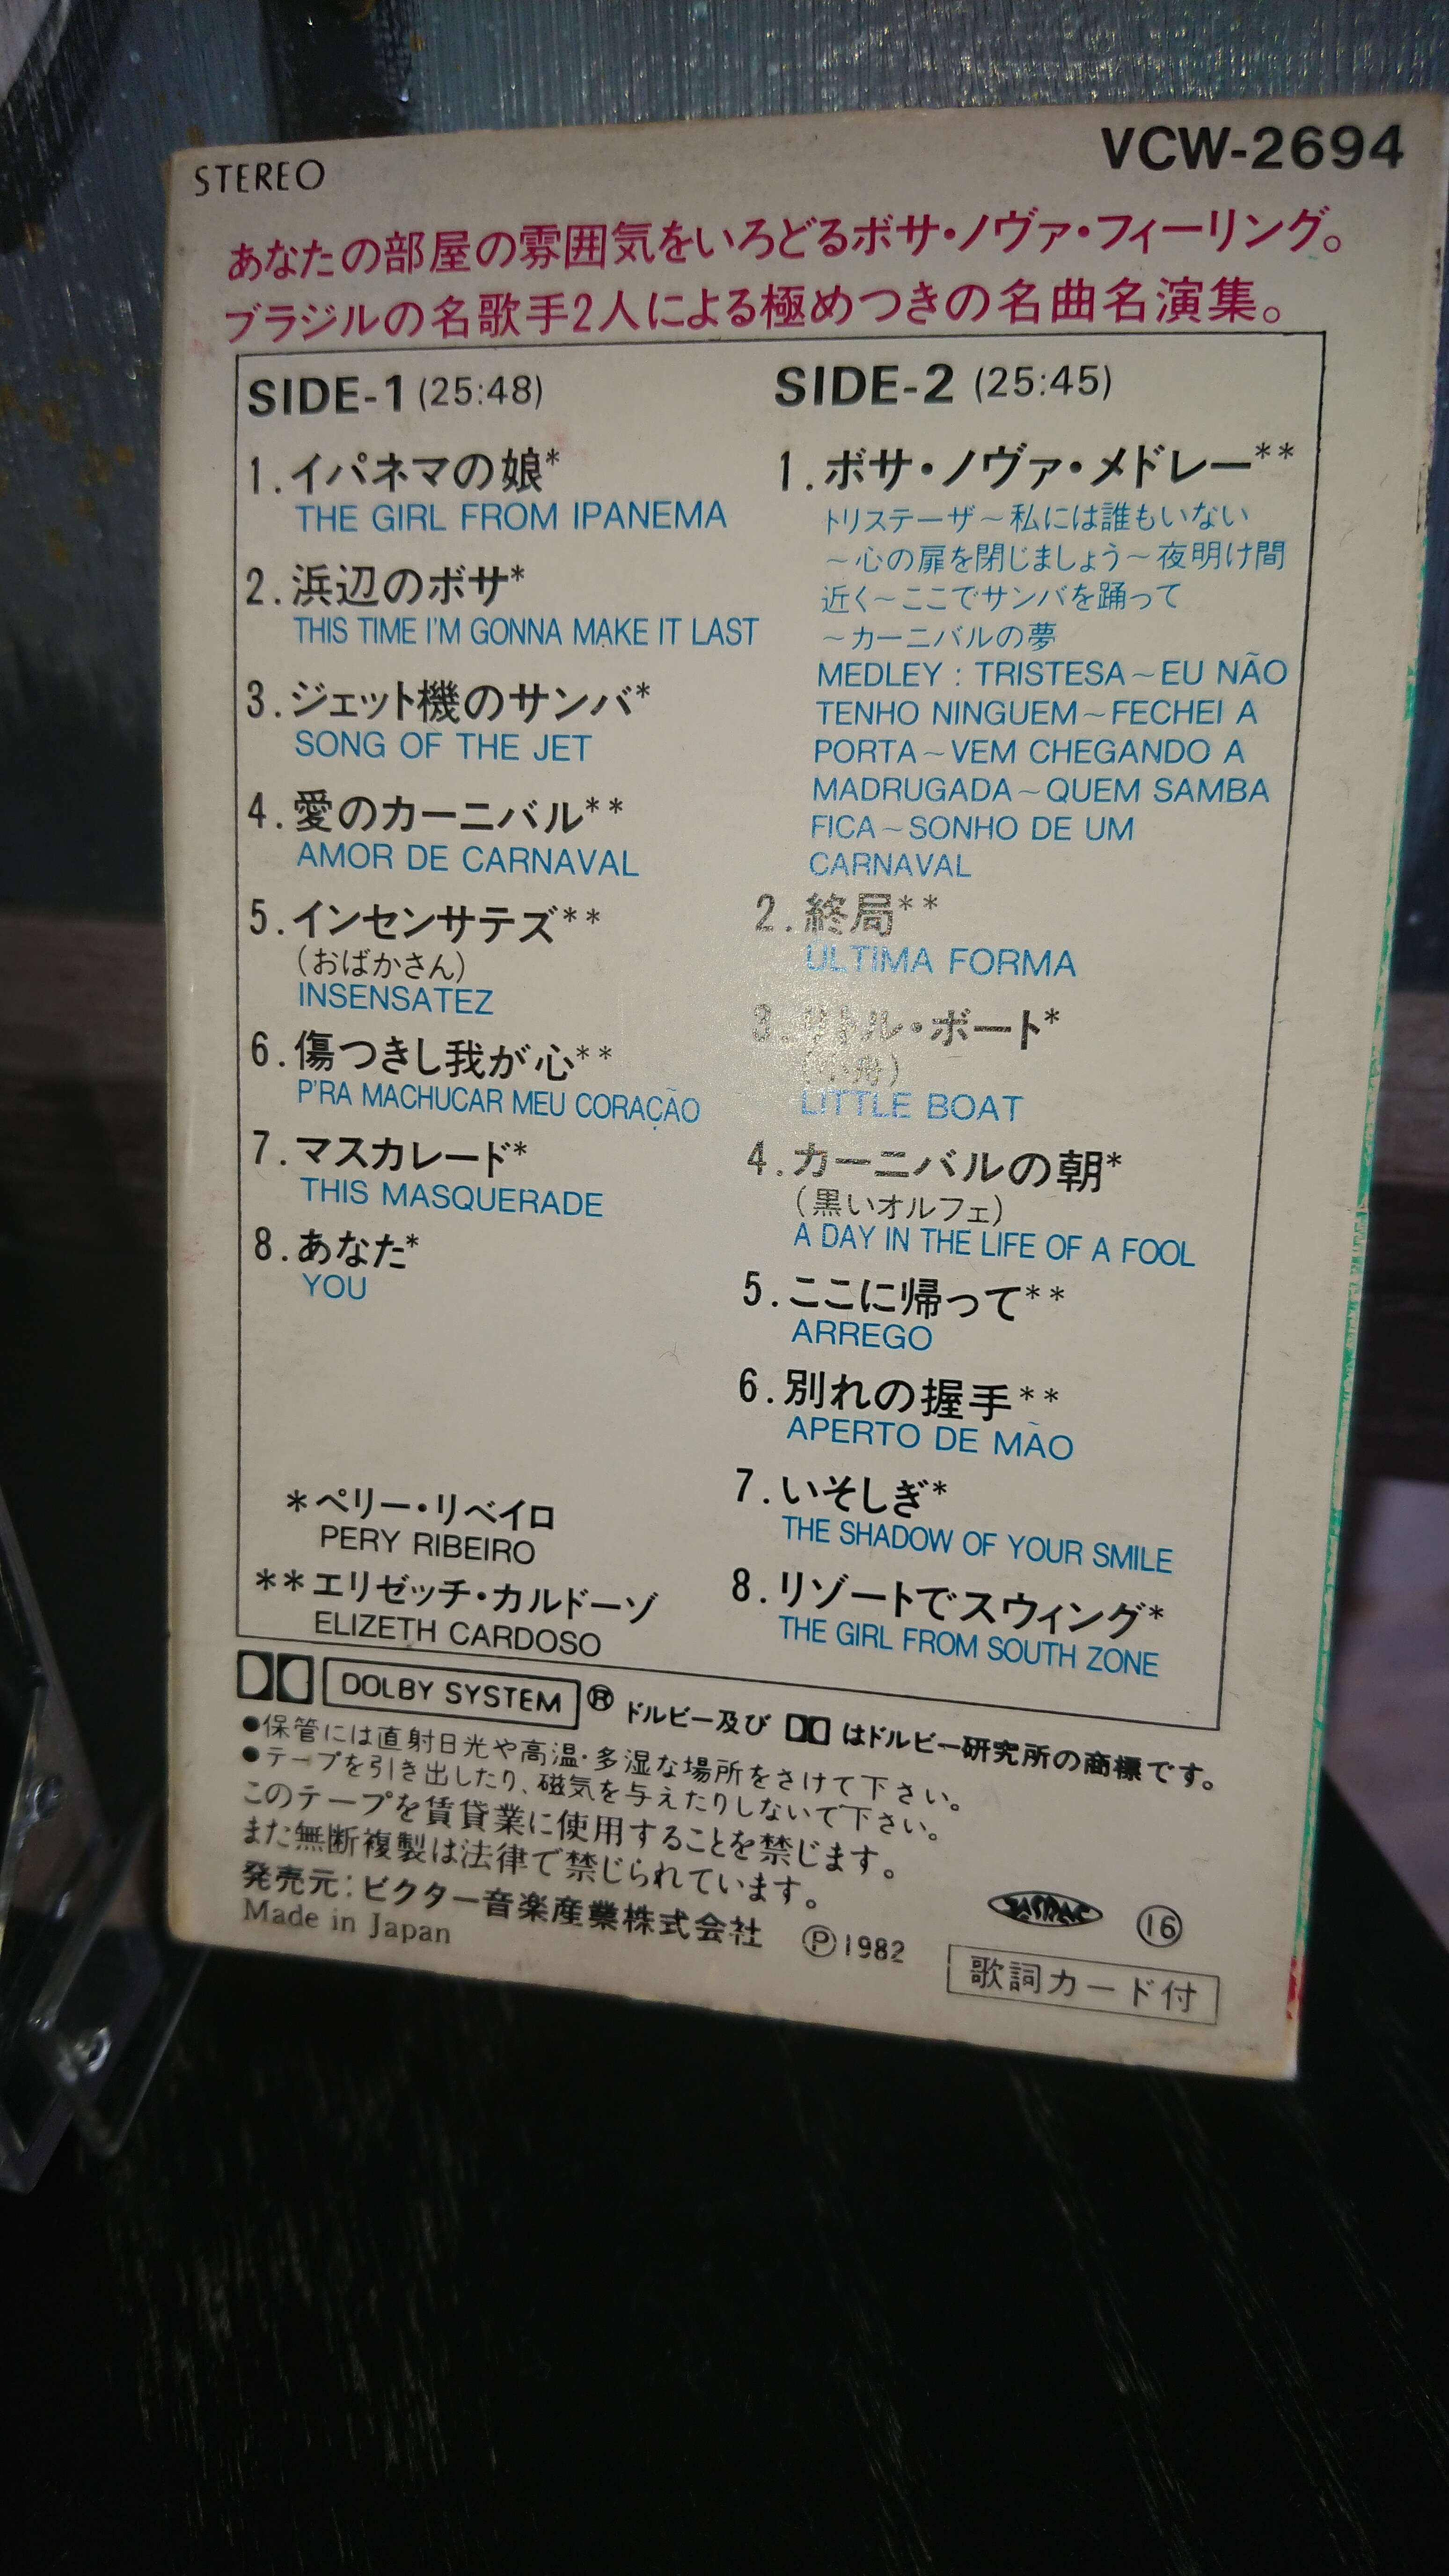 STEREO
VCW-2694
あなたの部屋の雰囲気をいろどるボサ・ノヴァ・フィーリング。
ブラジルの名歌手2人による極めつきの名曲名演集。
SIDE-1 (25:48)
1.イパネマの娘*
THE GIRL FROM IPANEMA
2.浜辺のボサ*
THIS TIME I'M GONNA MAKE IT LAST
3.ジェット機のサンバ*
SONG OF THE JET
4.愛のカーニバル**
AMOR DE CARNAVAL
5.インセンサテズ**
(おばかさん)
INSENSATEZ
6.傷つきし我が心**
P'RA MACHUCAR MEU CORAÇÃO
7.マスカレード*
THIS MASQUERADE
8.あなた*
YOU
*ペリー・リベイロ
PERY RIBEIRO
**エリゼッチ・カルドーゾ
ELIZETH CARDOSO
SIDE-2 (25:45)
1.ボサ・ノヴァ・メドレー**
トリステーザ~私には誰もいない
~心の扉を閉じましょう~夜明け間
近く~ここでサンバを踊って
~カーニバルの夢
MEDLEY : TRISTESA~EU NÃO
TENHO NINGUEM~FECHEI A
PORTA~VEM CHEGANDO A
MADRUGADA~QUEM SAMBA
FICA~SONHO DE UM
CARNAVAL
2.終局**
ULTIMA FORMA
3.リトル・ボート*
(小舟)
LITTLE BOAT
4.カーニバルの朝*
(黒いオルフェ)
A DAY IN THE LIFE OF A FOOL
5.ここに帰って**
ARREGO
6.別れの握手**
APERTO DE MÃO
7.いそしぎ*
THE SHADOW OF YOUR SMILE
8.リゾートでスウィング*
THE GIRL FROM SOUTH ZONE
DOLBY SYSTEM ® ドルビー及び はドルビー研究所の商標です。
●保管には直射日光や高温・多湿な場所をさけて下さい。
●テープを引き出したり、磁気を与えたりしないで下さい。
このテープを賃貸業に使用することを禁じます。
また無断複製は法律で禁じられています。
発売元:ビクター音楽産業株式会社
Made in Japan
Ⓟ1982
JASRAC
⑯
歌詞カード付